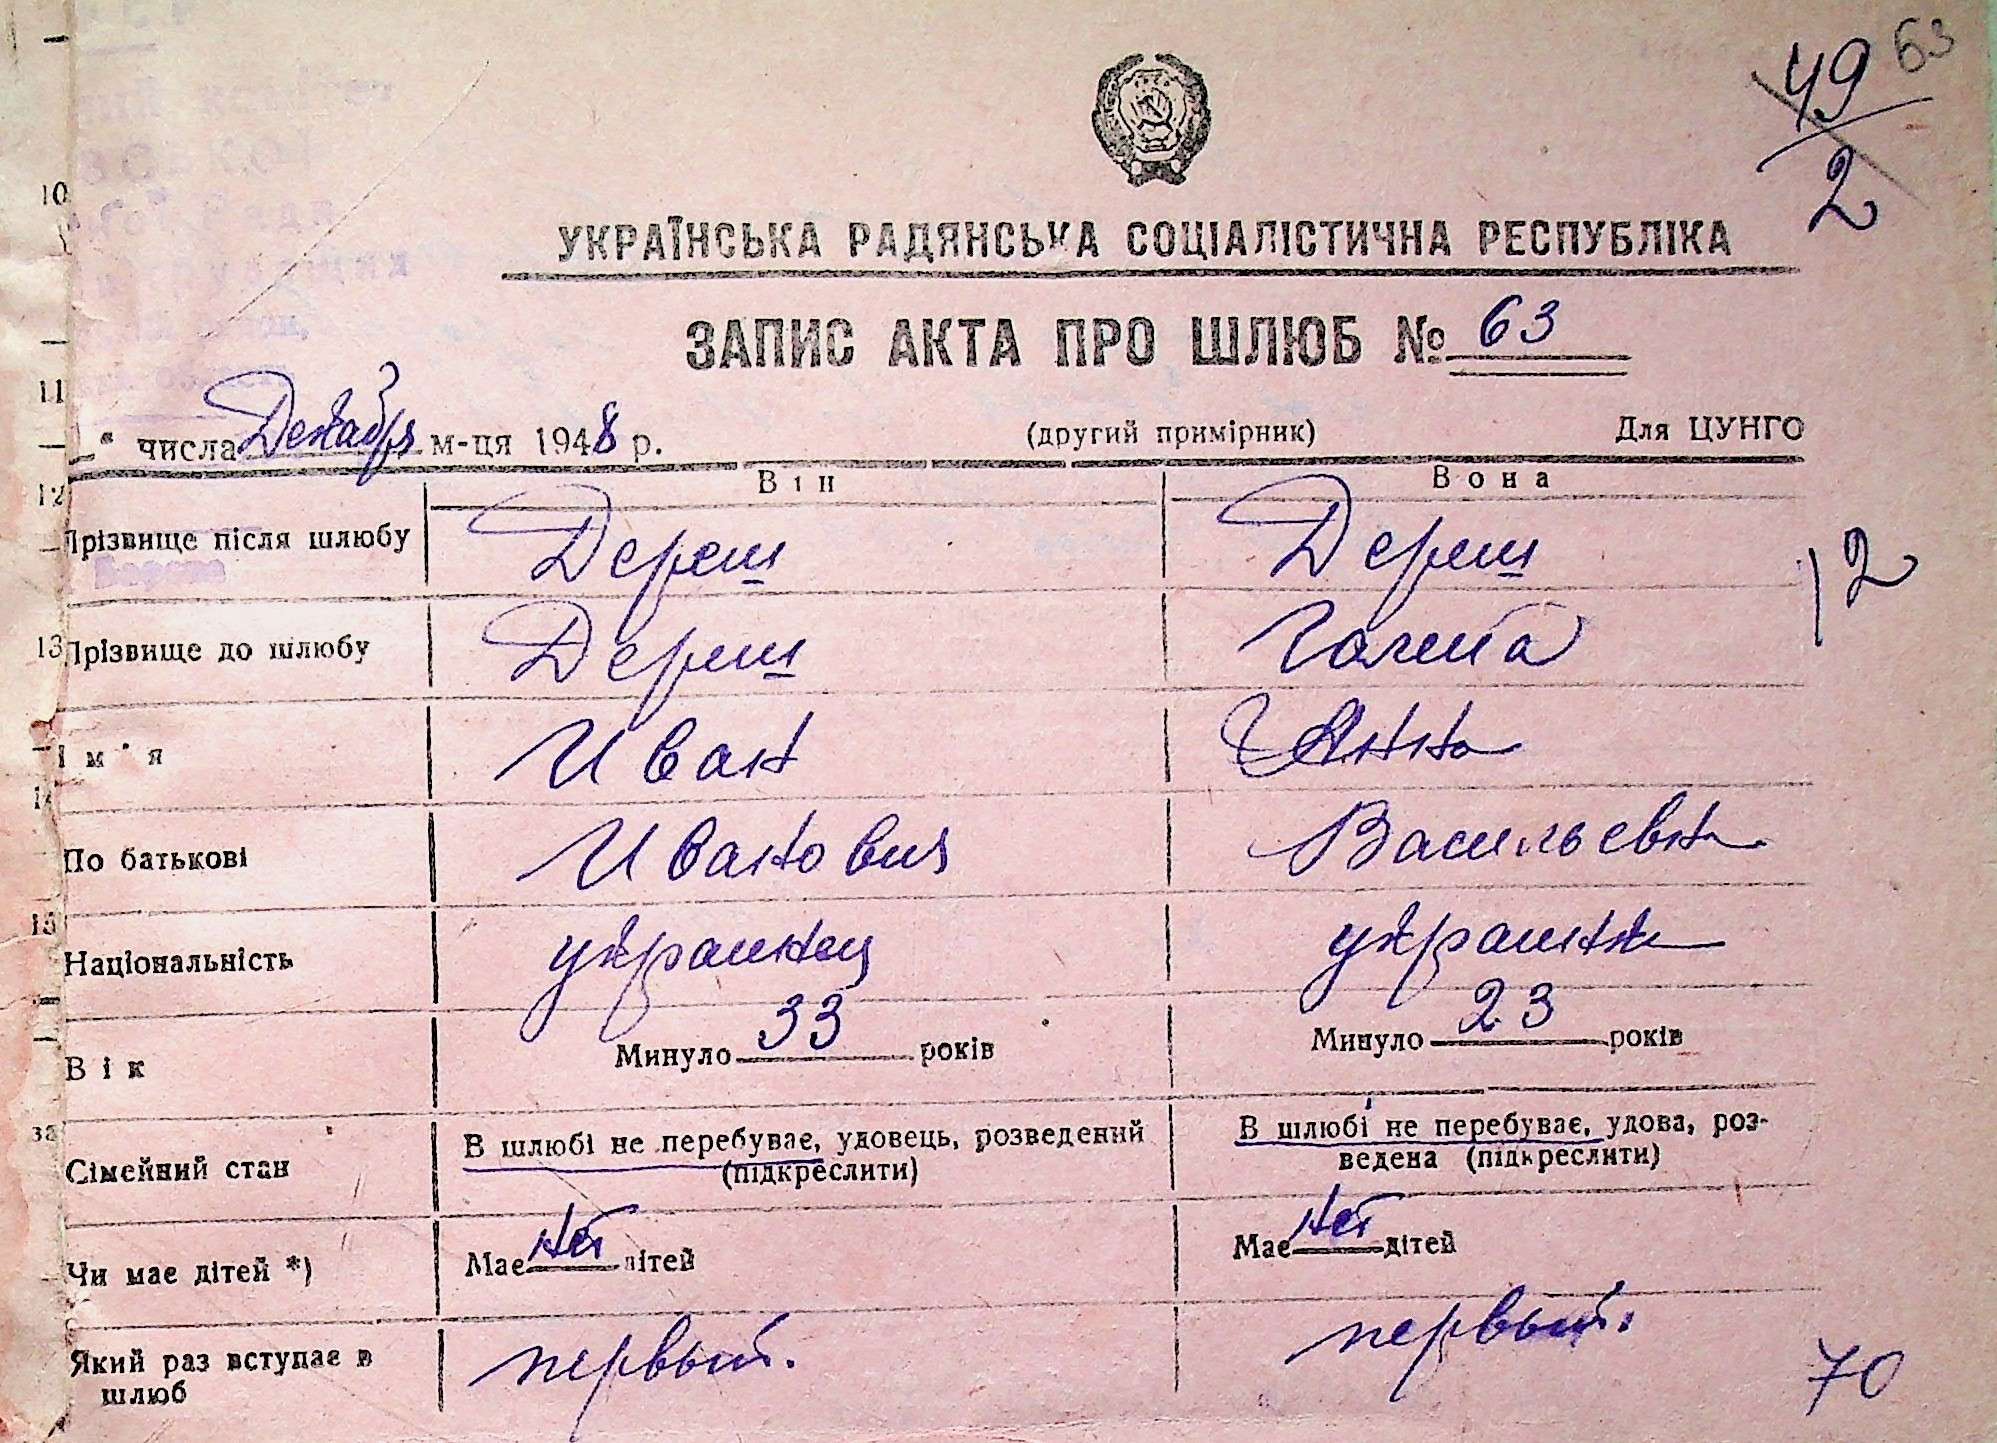 63
49
2
УКРАЇНСЬКА РАДЯНСЬКА СОЦІАЛІСТИЧНА РЕСПУБЛІКА
ЗАПИС АКТА ПРО ШЛЮБ № 63
" числа Декабря м-ця 1948 р. (другий примірник) Для ЦУНГО
Він Вона
Прізвище після шлюбу Дереш Дереш
12
Прізвище до шлюбу Дереш
Ім'я Иван Анна
По батькові Иванович Васильевна
Національність украинец украинка
Вік Минуло 33 років Минуло 23 років
Сімейний стан В шлюбі не перебуває, удовець, розведений (підкреслити) В шлюбі не перебуває, удова, роз-
ведена (підкреслити)
Чи має дітей *) Має нет дітей Має нет дітей
Який раз вступає в первый. первый.
шлюб
70
10
11
12
13
14
15